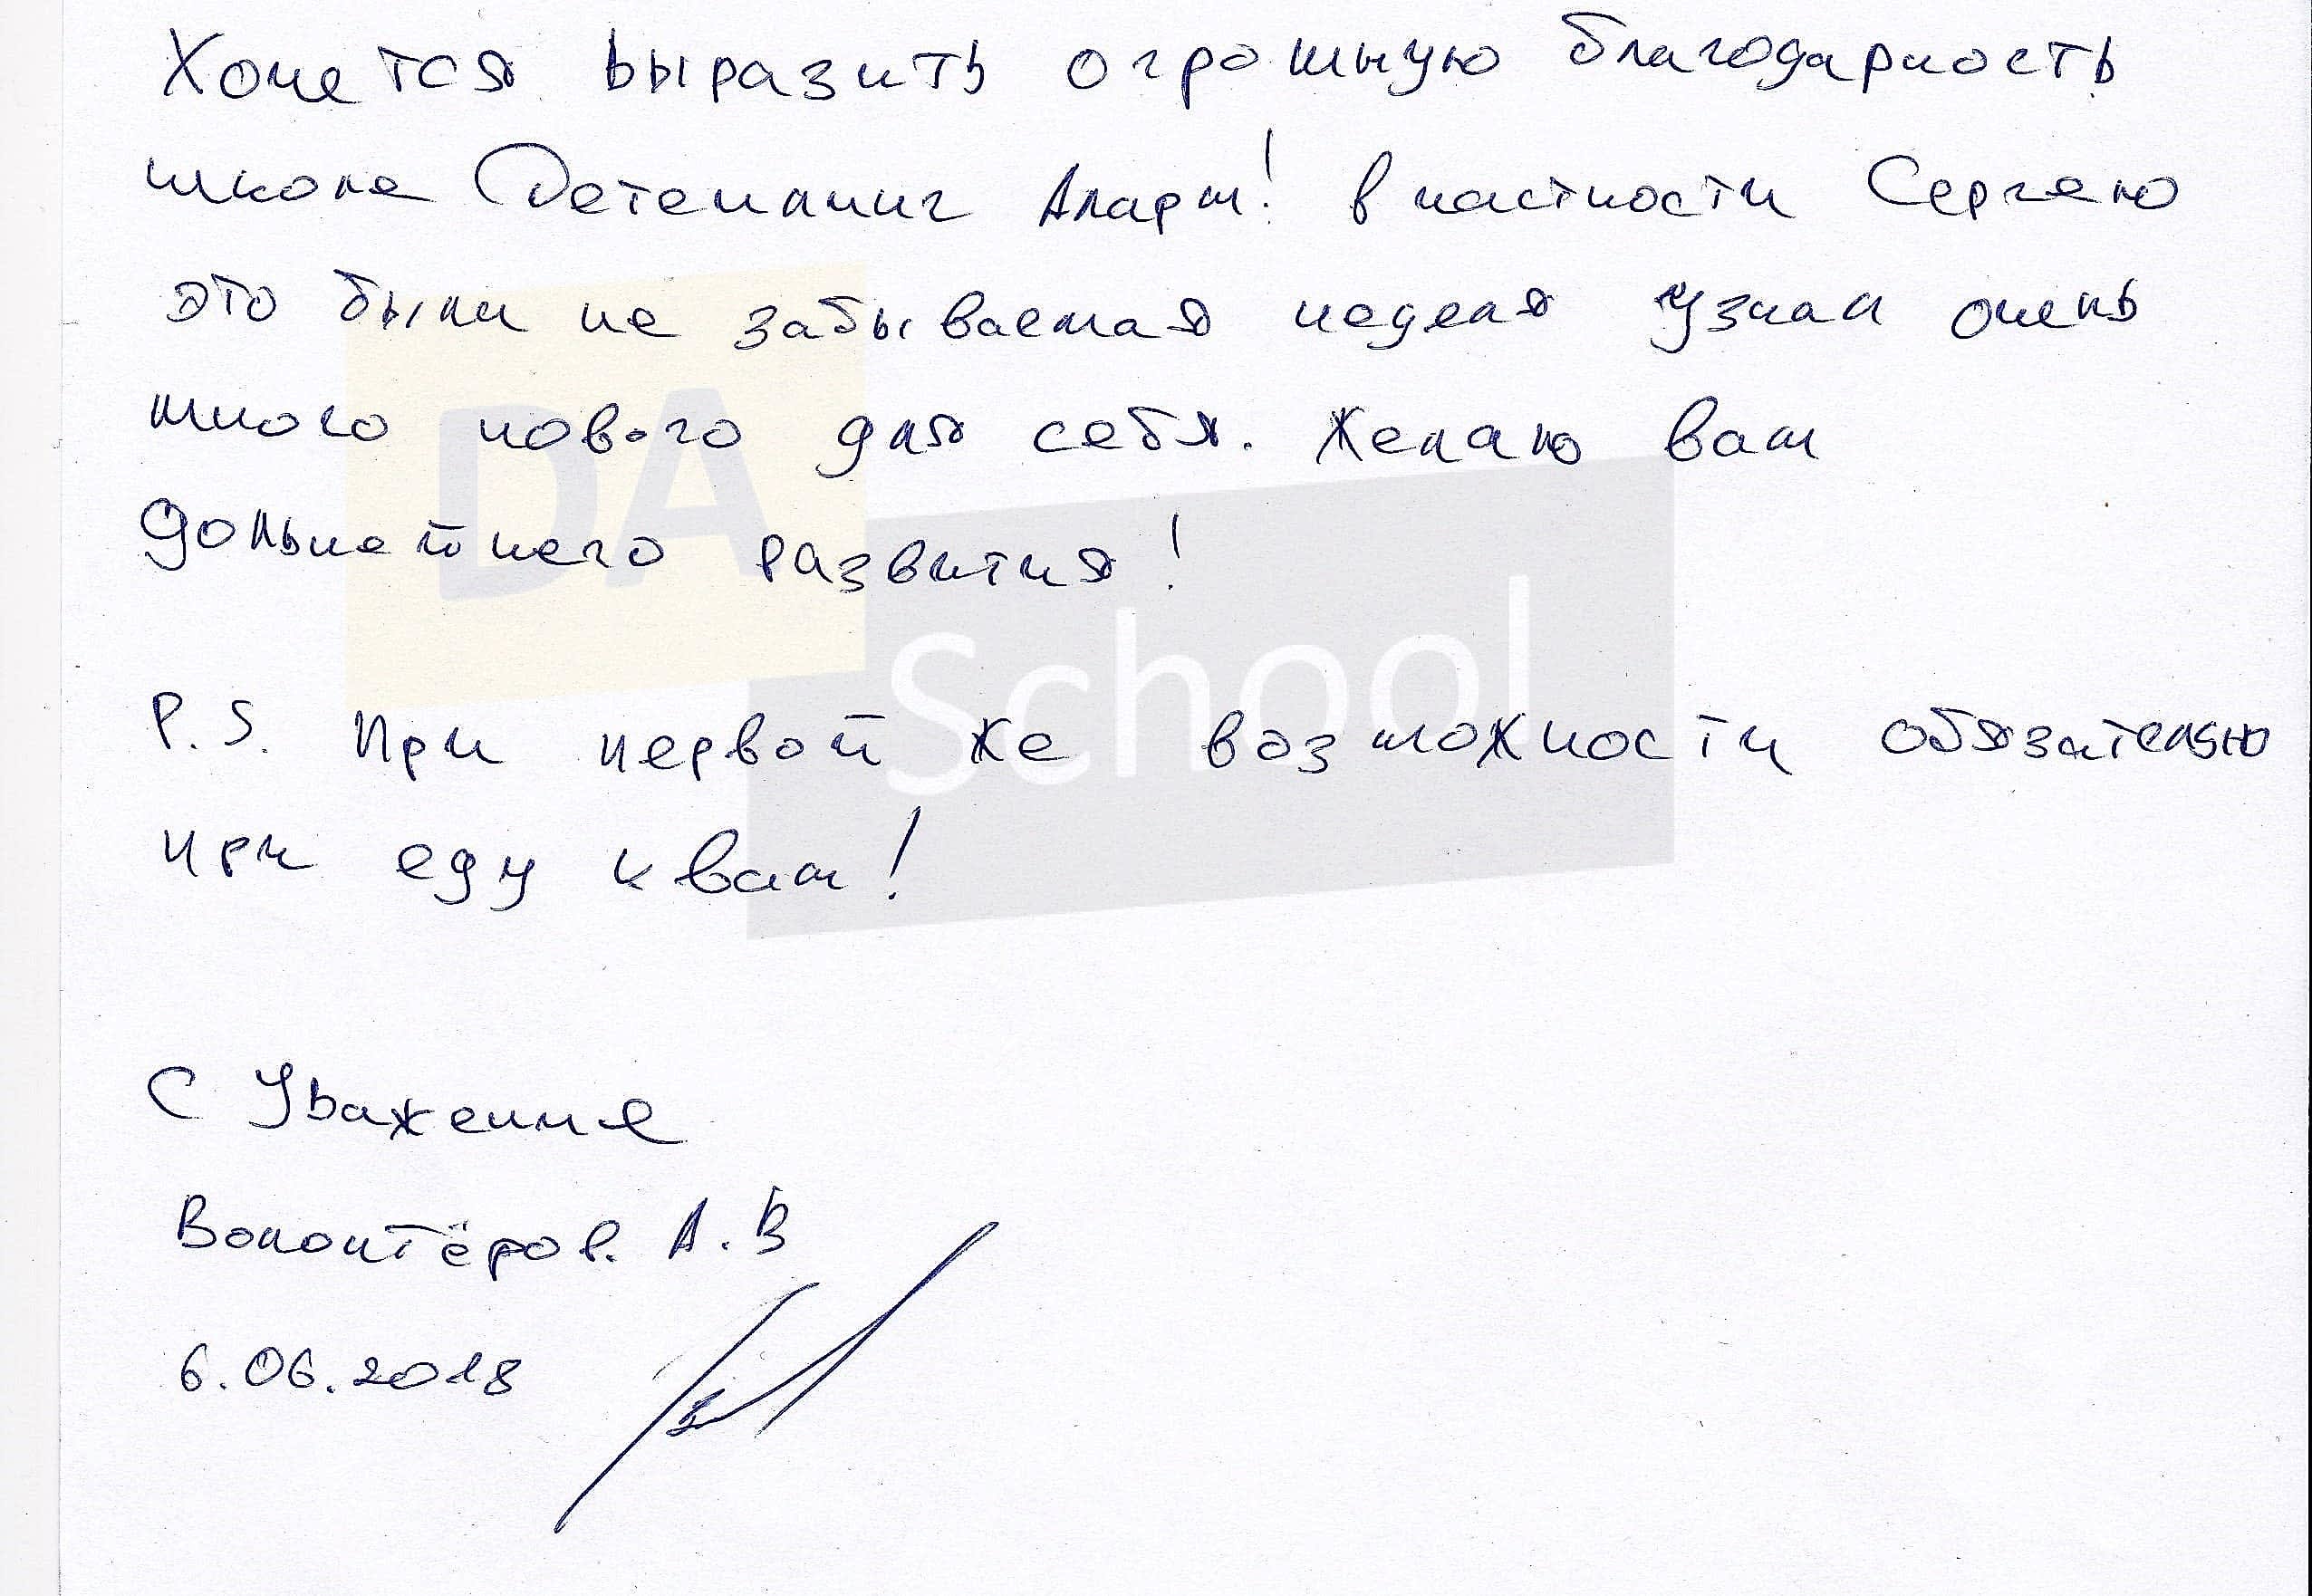 Хочется выразить огромную благодарность
школе Детейлинг Аларм! в частности Сергею
это были не забываемая неделя узнал очень
много нового для себя. Желаю вам
дольнейшего развития!
DA
School
P.S. При первой же возможности обязательно
при еду к вам!
С Уважение
Волонтёров. А.В
6.06.2018